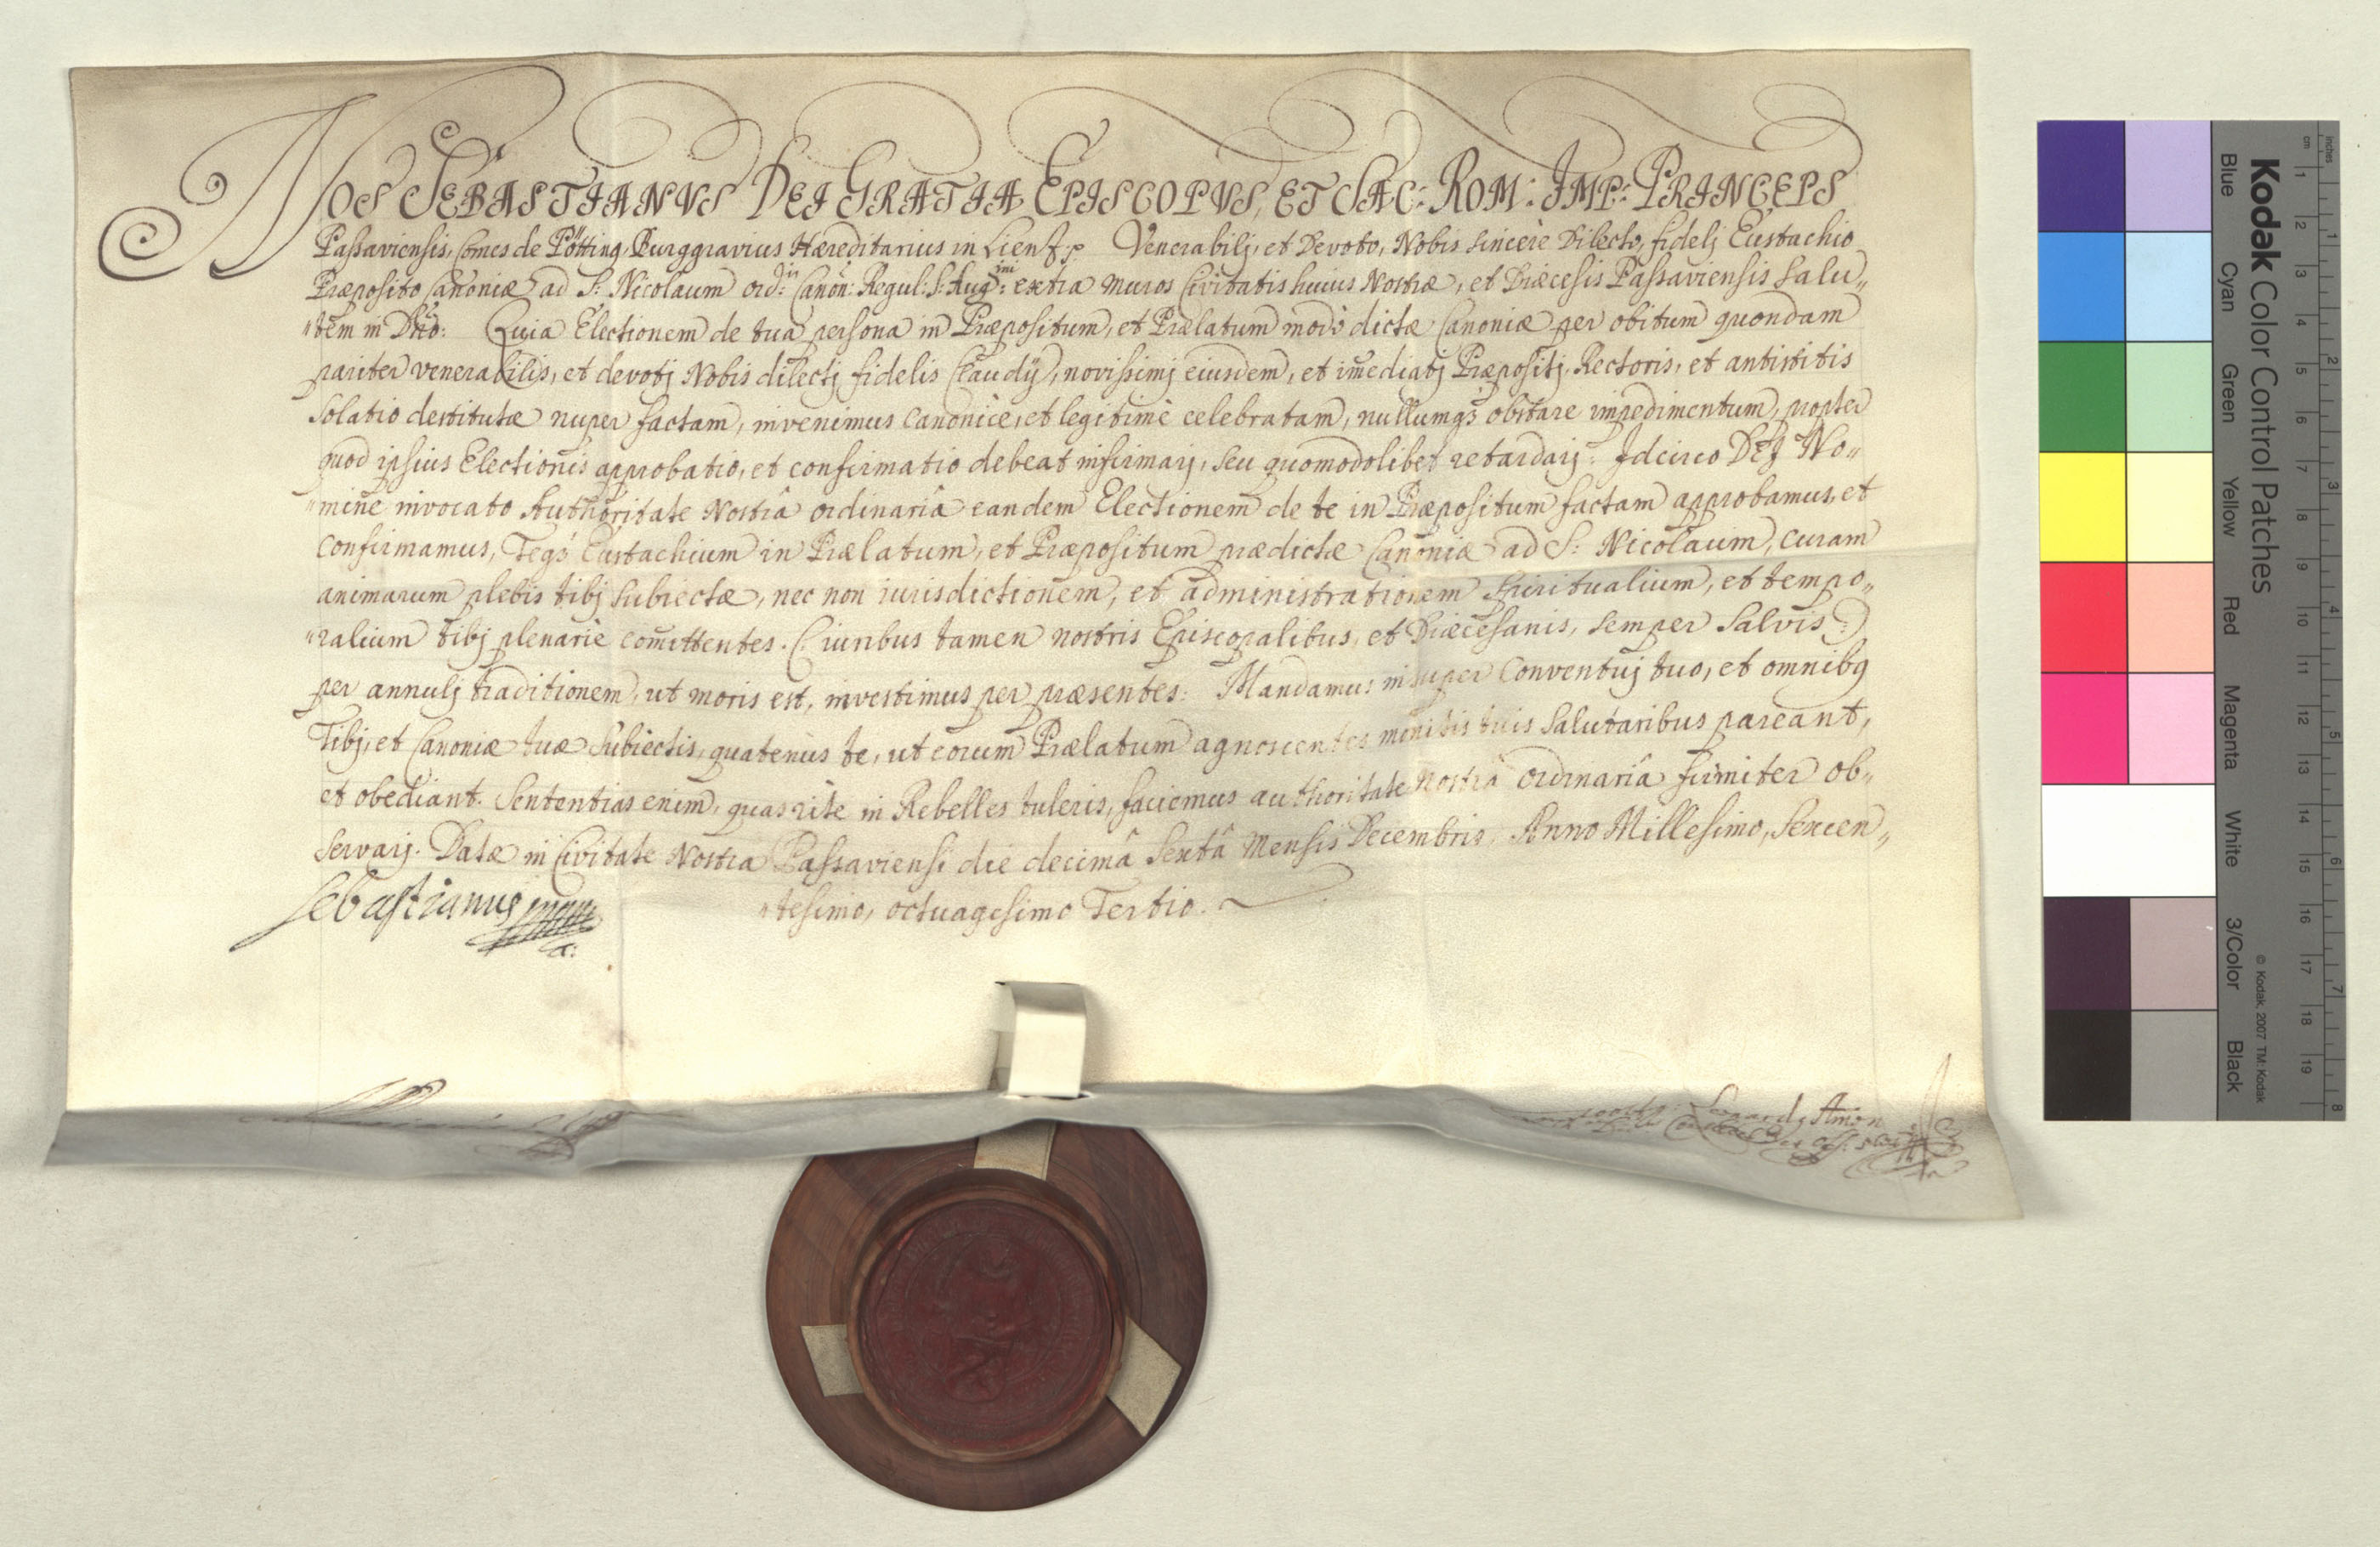 NOS SEBASTIANVS DEI GRATIA EPISCOPVS, ET SAC: ROM: IMP: PRINCEPS
Passaviensis, Comes de Pötting, Burggravius Hæreditarius in Lienz. Venerabilj, et Devoto, Nobis sincerè Dilecto, fidelj Eustachio
Præposito Canoniæ ad S: Nicolaum ord:is Canon: Regul: S: Aug:ini extra muros Civitatis huius Nostræ, et Diœcesis Passaviensis Salu„
„tem in Dño: Quia Electionem de tua persona in Præpositum, et Prælatum modò dictæ Canoniæ per obitum quondam
pariter venerabilis, et devotj Nobis dilectj fidelis Claudij, novissimj eiusdem, et im̄ediatj Præpositj, Rectoris, et antistitis
solatio destitutæ nuper factam, invenimus canonicè, et legitimè celebratam, nullumq3 obstare impedimentum, propter
quod ipsius Electionis approbatio, et confirmatio debeat infirmarj, seu quomodolibet retardarj: Idcirco DEJ No„
„mine invocato Authoritate Nostrâ ordinariâ eandem Electionem de te in Præpositum factam approbamus, et
confirmamus, Teq3 Eustachium in Prælatum, et Præpositum prædictæ Canoniæ ad S: Nicolaum, curam
animarum plebis tibj subiectæ, nec non iurisdictionem, et administrationem Spiritualium, et tempo„
„ralium tibj plenariè com̄ittentes. (: iuribus tamen nostris Episcopalibus, et Diœcesanis, semper salvis :)
per annulj traditionem, ut moris est, investimus per præsentes: Mandamus insuper Conventuj tuo, et omnibq
Tibj, et Canoniæ tuæ Subiectis, quatenùs te, ut eorum Prælatum agnoscentes monitis tuis salutaribus pareant,
et obediant. Sententias enim, quas ritè in Rebelles tuleris, faciemus authoritate Nostrâ ordinariâ firmiter ob„
servarj. Datæ in Civitate Nostra Passaviensi die decimâ sextâ Mensis Decembris, Anno Millesimo, Sexcen„
„tesimo, octuagesimo Tertio.
Sebastianus
Amon
Kodak Color Control Patches
© Kodak, 2007 TM: Kodak
Blue Cyan Green Yellow Red Magenta White 3/Color Black
inches
1 2 3 4 5 6 7 8
cm
1 2 3 4 5 6 7 8 9 10 11 12 13 14 15 16 17 18 19